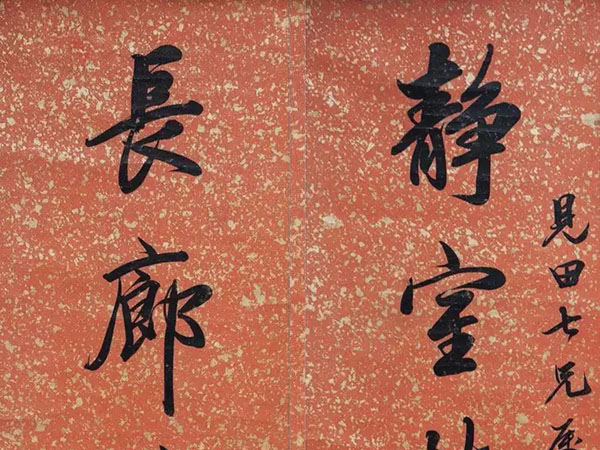 見田七兄屬
靜室
長廊